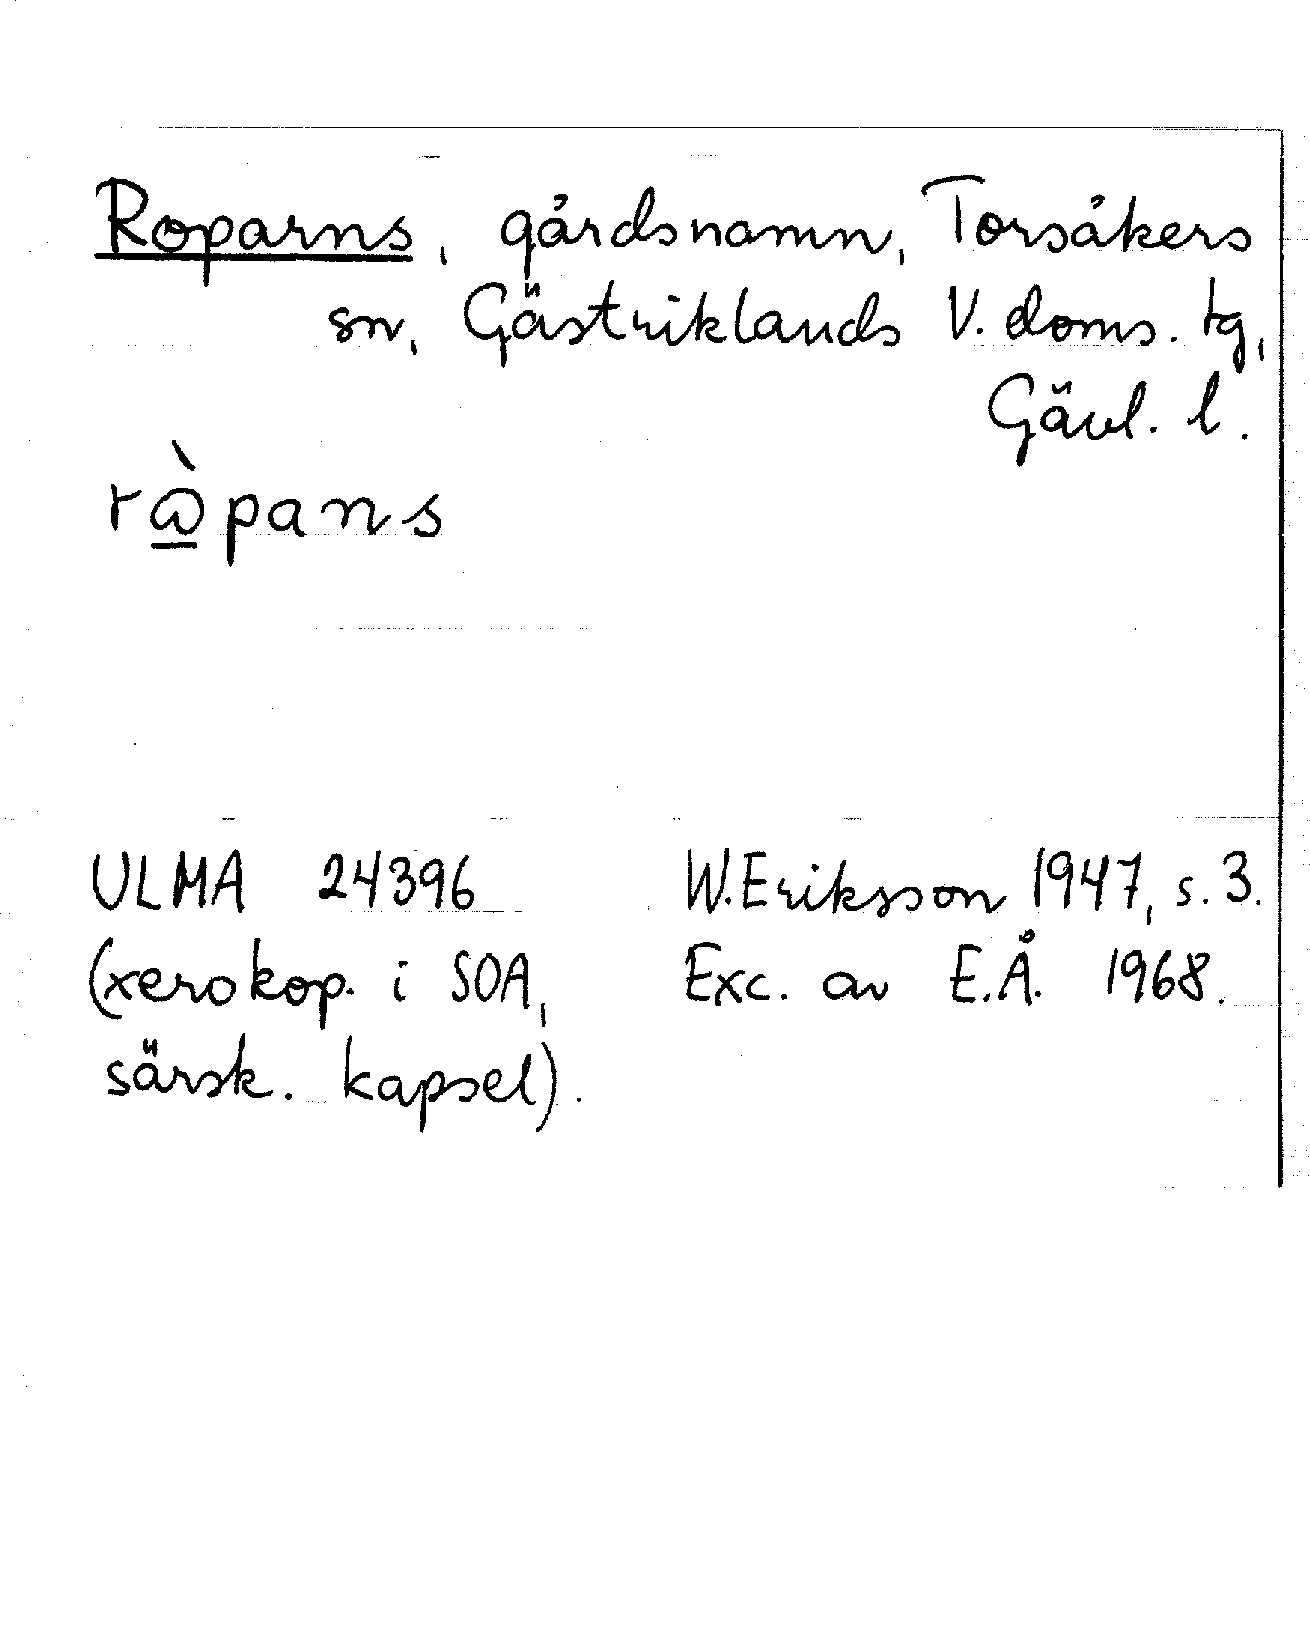 Roparns, gårdsnamn, Torsåkers
sn, Gästriklands V. doms. tg,
Gävl. l.
rὼ̲pans
ULMA 24396 W. Eriksson 1947, s. 3.
(xerokop. i SOA, Exc. av E.Å. 1968.
särsk. kapsel).